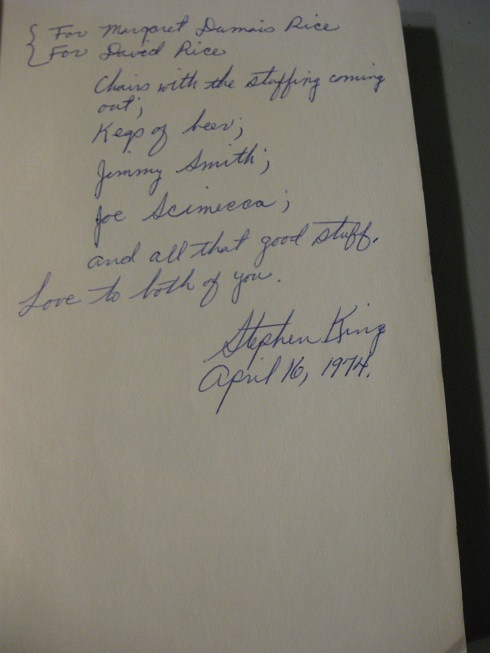 For Margaret Dumais Rice
For David Rice
Chairs with the stuffing coming
out;
Kegs of beer;
Jimmy Smith;
Joe Scimecca;
and all that good stuff.
Love to both of you.
Stephen King
April 16, 1974.